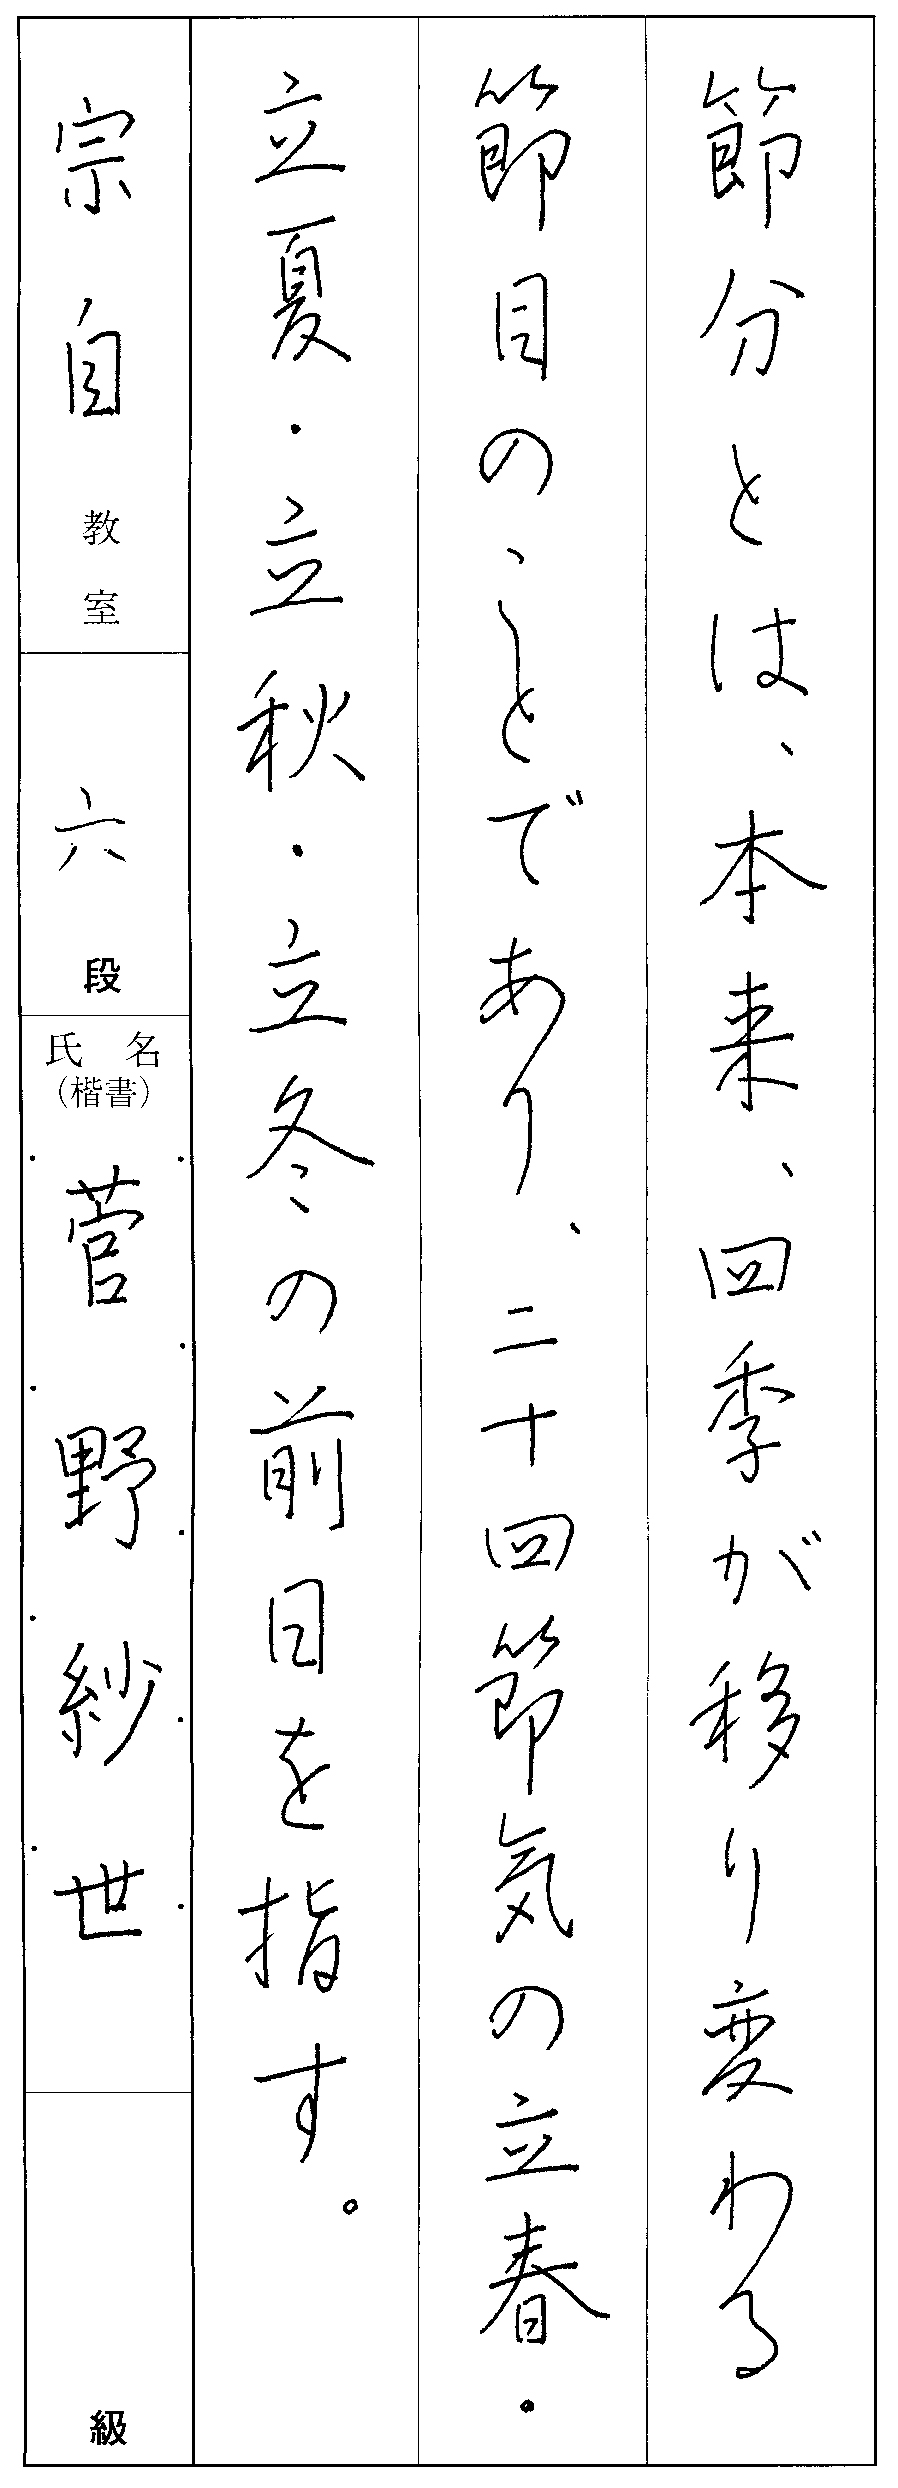 節分とは、本来、四季が移り変わる
節目のことであり、二十四節気の立春・
立夏・立秋・立冬の前日を指す。
宗自教室
六段
氏名
(楷書)
菅野紗世
級